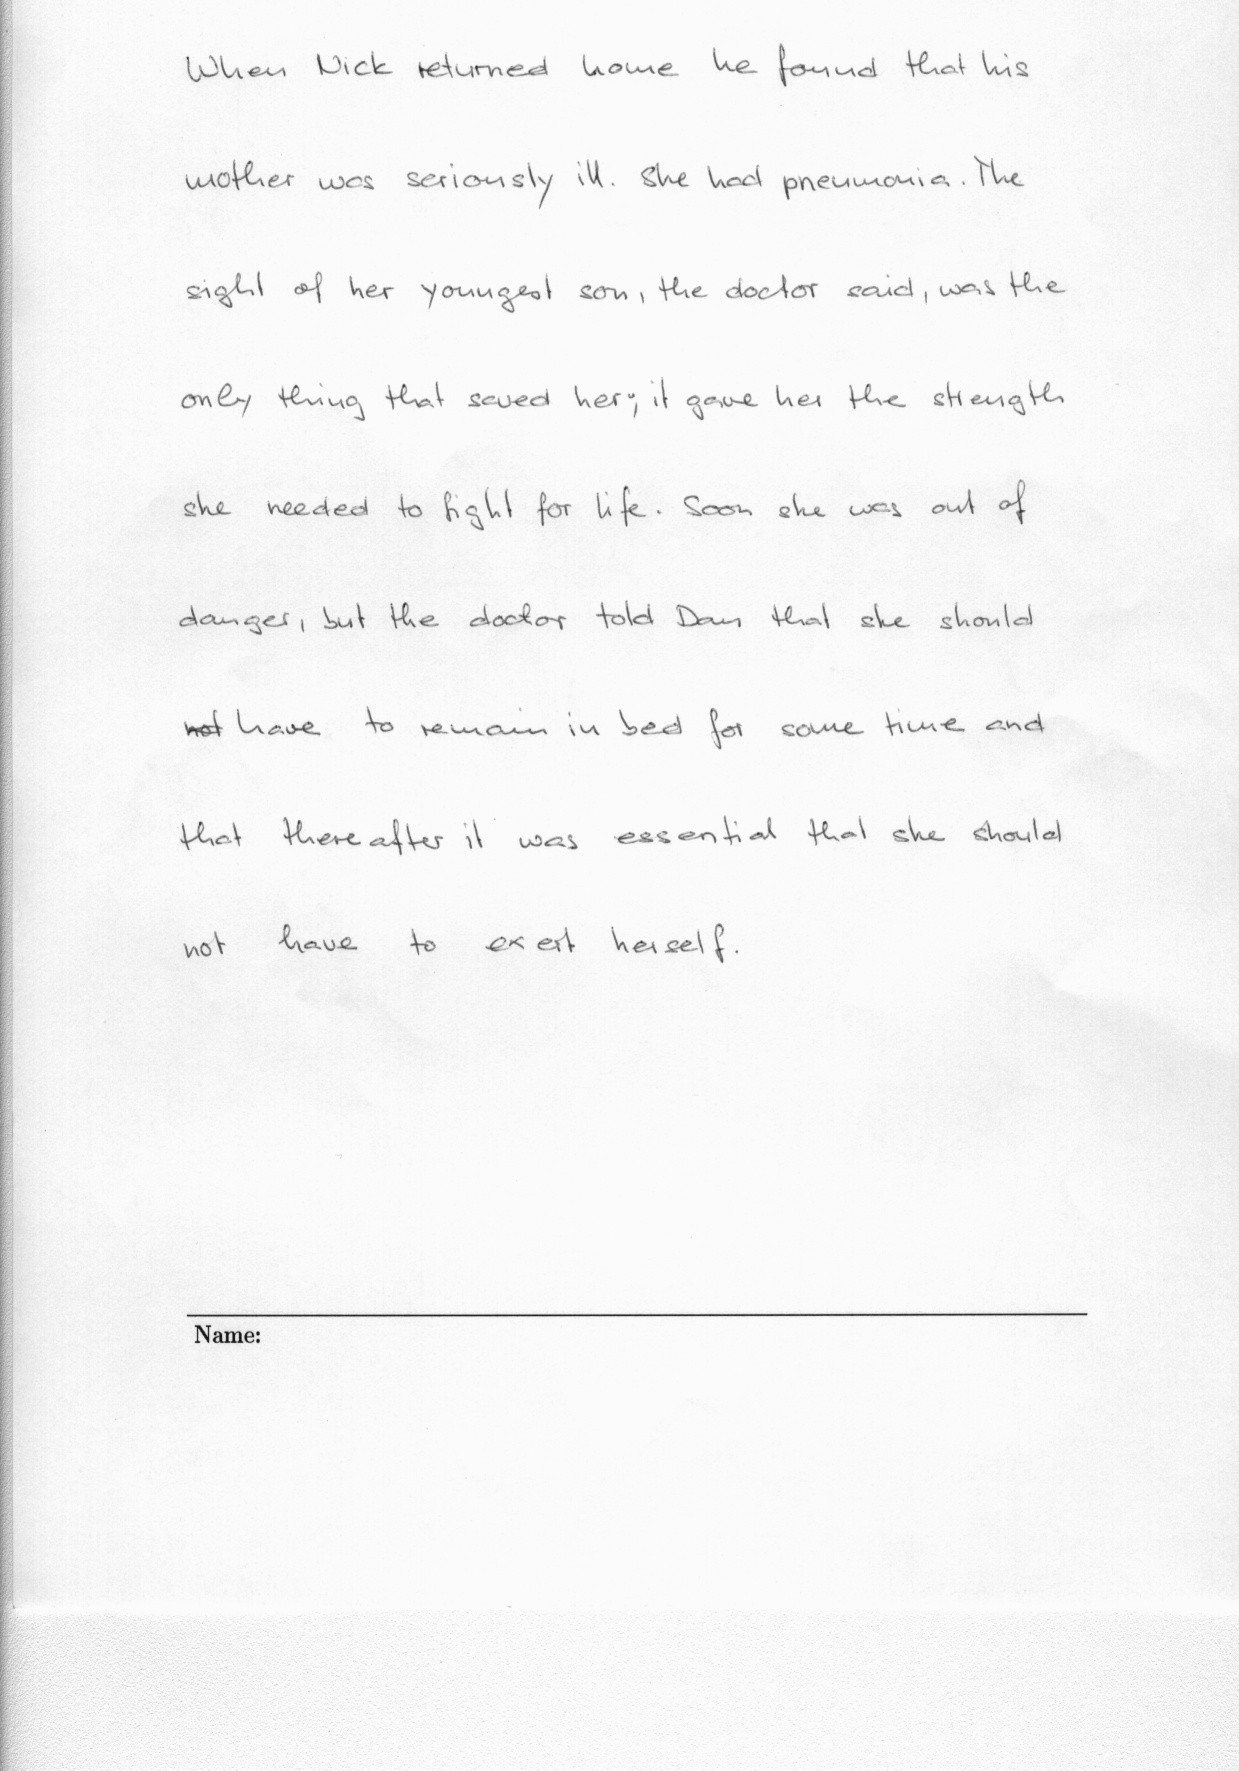 When Nick returned home he found that his
mother was seriously ill. She had pneumonia. The
sight of her youngest son, the doctor said, was the
only thing that saved her; it gave her the strength
she needed to fight for life. Soon she was out of
danger, but the doctor told Dan that she should
not have to remain in bed for some time and
that thereafter it was essential that she should
not have to exert herself.
Name: